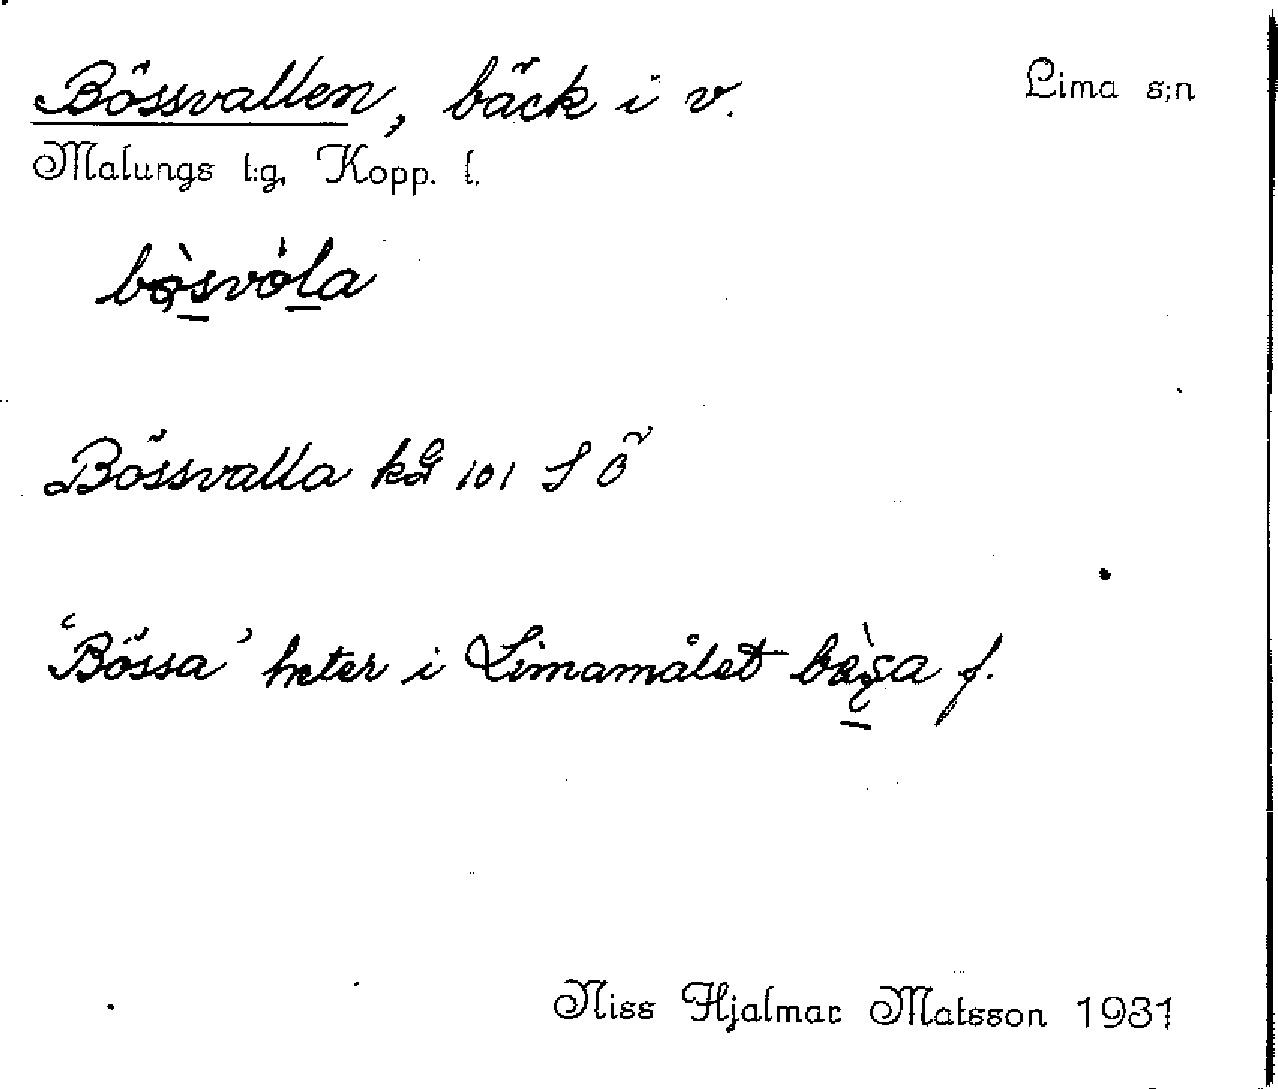 Bössvallen, bäck i v. Lima s:n
Malungs t:g, Kopp. l.
bòsvòla
Bössvalla kG 101 S Ö
'Bössa' heter i Limamålet f.
Niss Hjalmar Matsson 1931